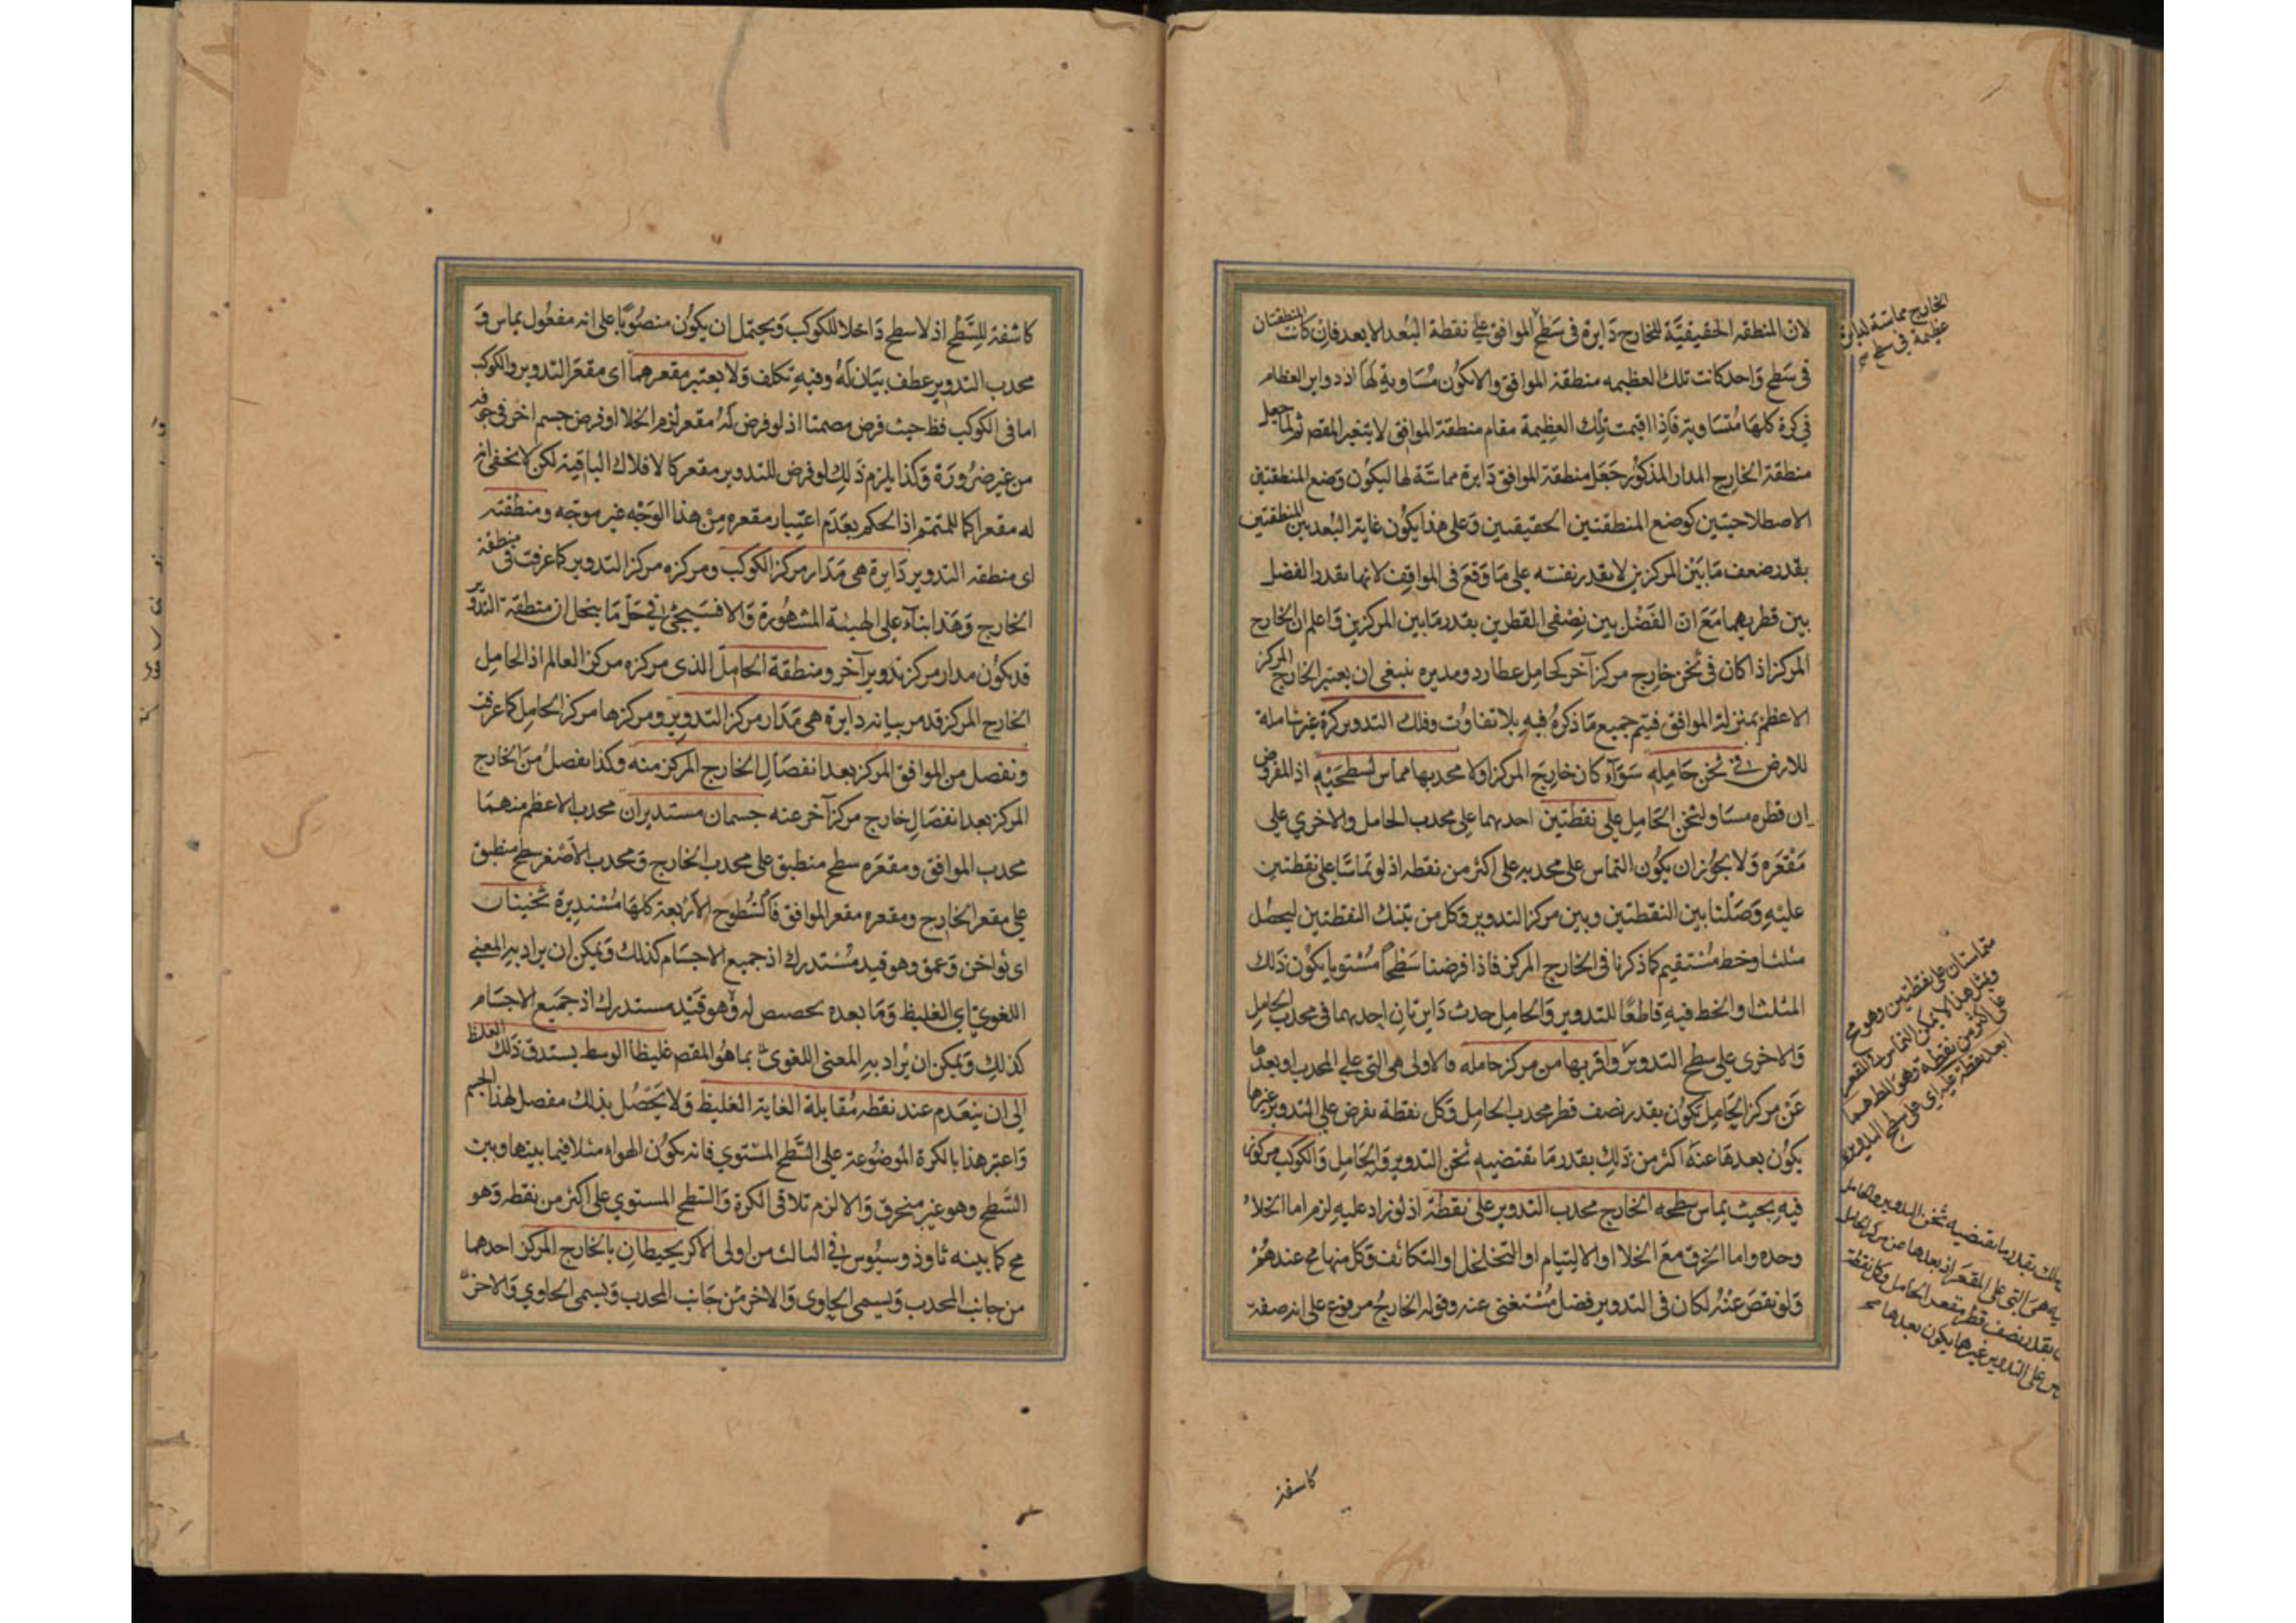 لان المنطقه الحقيقيَّة للخارج دَايرة فى سَطح الموافق على نقطة البُعد الابعد فان كانت المنطقتان
فى سَطح وَاحد كانت تلك العظيمه منطقة الموافق والا يكون مُسَاوية لهَا اذ دواير العظام
فى كرة كلهَا مُتسَاوية فَاذا اقيمت تلك العظيمة مقام منطقة الموافق لا يتغير المقصد ثم لما جعل
منطقة الخارج المدار المذكور جَعَل منطقة الموافق دَايرة مماسَّة لها ليكون وَضع المنطقتين
الاصطلاحيتين كوضع المنطقتين الحقيقيين وَعلى هذا يكون غاية البُعد بين المنطقتين
بقدر ضعف مَا بَيْن المركزين لا بقدر نفسه على مَا وَقعَ فى المواقف لانها بقدر الفضل
بين قطريهما مَعَ ان الفَضْل بين نِصْفى القطرين بقدر مَا بين المركزين وَاعلم ان الخارج
المركز اذا كان فى ثخن خارج مركز آخر كحامل عطارد ومديره ينبغى ان يعتبر الخارج المركز
الاعظم بمنزلة الموافق فيتم جميع مَا ذكرهُ فيه بلا تفاوُت وفلك التدوير كرة غير شاملة
للارض فى ثخن حَامله سَوَآء كان خارجَ المركز اولا محدبها مماس لسطحَيْهِ اذ المفروض
ان قطره مسَاوٍ لثخن الحَامِل على نقطتين احديهما على محدب الحامل والاخري على
مَقْعَره وَلا يجُوز ان يكُون التماس على محدبه على اكثر من نقطه اذ لو تماسَّا على نقطتين
عليْهِ وَصَلنا بين النقطتين وبين مركز التدوير وَكل من تينك النقطتين ليحصُل
مثلث او خط مُستقيم كما ذكرنا فى الخارج المركز فاذا فرضنا سَطحًا مُسْتويا يكُون ذلك
المثلث او الخط فيهِ قاطعًا للتدوير وَالحامِل حدث دَايرتانِ احديهما فى محدب الحامِل
وَالاخرى على سطح التدوير وَاقربها من مركز حامله فالاولى هى التى على المحدب او بعدها
عَنْ مركز الحَامِل يكُون بقدر نصف قطر محدب الحامِل وَكل نقطة يفرض على التدوير غيرها
يكُون بعدهَا عنهُ اكثر من ذلِك بقدر مَا يقتضيهِ ثخن التدوير وَالحَامِل وَالكوكب مركوز
فيهِ بحيث يماس سطحه الخارج محدب التدوير على نقطة اذ لو زاد عليه لزم اما الخلاُ
وحده واما الخرق مَعَ الخلا او الالتيام او التخلخل او التكاثف وكل منها مح عندهُمْ
وَلو نقصَ عنْهُ لكان فى التدوير فضل مُستغنى عنه وقوله الخارجُ مرفوع على انه صفة
الخارج مماسّة لدايرة
عظيمة فى سطح
متماستان على نقطتين وهو مح
وبمثل هذا لا يمكن التماس فى المقعر
على اكثر من نقطة
ابعد نقطة عليه اى على سطح التدوير
بقدر ما يقتضيه ثخن التدوير والحامل
هى التى على المقعر اذ بعدها عن مركز الحامل
بقدر نصف قطر مقعر الحامل وكل نقطة
على التدوير غيرها يكون بعدها
كاشفة
كاشفة للسَّطح اذ لا سطح دَاخلا للكوكب وَيحتمل ان يكُون منصُوبًا على انه مفعُول يماس وَ
محدب التدوير عطف بيَان لهُ وفيهِ تكلف وَلا يعتبر مقعرهما اى مقعر التدوير والكوكب
اما فى الكوكب فظ حيث فرض مصمتا اذ لو فرض لهُ مقعر لزم الخلا او فرض جسم اخر فى جوفه
من غير ضرُورَة وَكذا يلزم ذلِك لو فرض للتدوير مقعر كالافلاك الباقية لكن لا يخفى انه
له مقعرا كما للمتمم اذ الحكم بعَدَم اعتبار مقعره مِنْ هذا الوَجْه غير موجّه ومنطقته
اى منطقه التدوير دَايرة هى مَدَار مركز الكوكب ومركزه مركز التدوير كما عرفت فى منطقة
الخارج وَهَذا بناءً على الهيئة المشهُورة وَالا فسَيجئ فى حَلّ مَا ينحل ان منطقة التدوير
قد يكُون مدار مركز تدوير آخر ومنطقة الحامل الذى مركزه مركز العالم اذ الحامِل
الخارج المركز قد مر بيانه دايرة هى مَدَار مركز التدوير ومركزها مركز الحامِل كما عرفت
ونفصل من الموافق المركز بعد انفصَالِ الخارج المركز منه وكذا يفصل مِن الخارج
المركز بعد انفصَالِ خارج مركز آخر عنه جسمان مستديران محدب الاعظم منهمَا
محدب الموافق ومقعَره سطح منطبق على محدب الخارج وَمحدب الاَصْغر سطح منطبق
على مقعر الخارج ومقعره مقعر الموافق فالسُّطوح الاربعة كلها مُسْتديرة ثخينان
اى ذوا ثخن وَعمق وهو قيد مُسْتدرك اذ جميع الاجسَام كذلك وَيمكن ان يراد بهِ المعنى
اللغوىّ اى الغليظ وَمَا بعده تخصيص له وَهو قَيْد مستدرك اذ جَميع الاجسَام
كذلِك وَيمكن ان يُراد بهِ المعنى اللغوى بما هُو المقصد غليظا الوسط يستدق ذلك الغلظ
الى ان ينعَدم عند نقطه مُقابلة الغاية الغليظ وَلا يَحْصُل بذلك مفصل لهذا الجسم
وَاعتبر هذا بالكرة الموضُوعة على السَّطح المسْتوي فانه يكُون الهواء مثلا فيما بينها وبين
السَّطح وهو غير منخرق وَالا لزم تلاقى الكرة وَالسَّطح المستوي على اكثر من نقطه وَهو
مح كما بينه ثاوذوسيُوس فى الثالث من اولى الاكر يحيطانِ بالخارج المركز احدهما
من جانب المحدب وَيسمى الحاوى وَالاخر مْن جَانب المحدب وَيسمى الحاوي وَالاخر